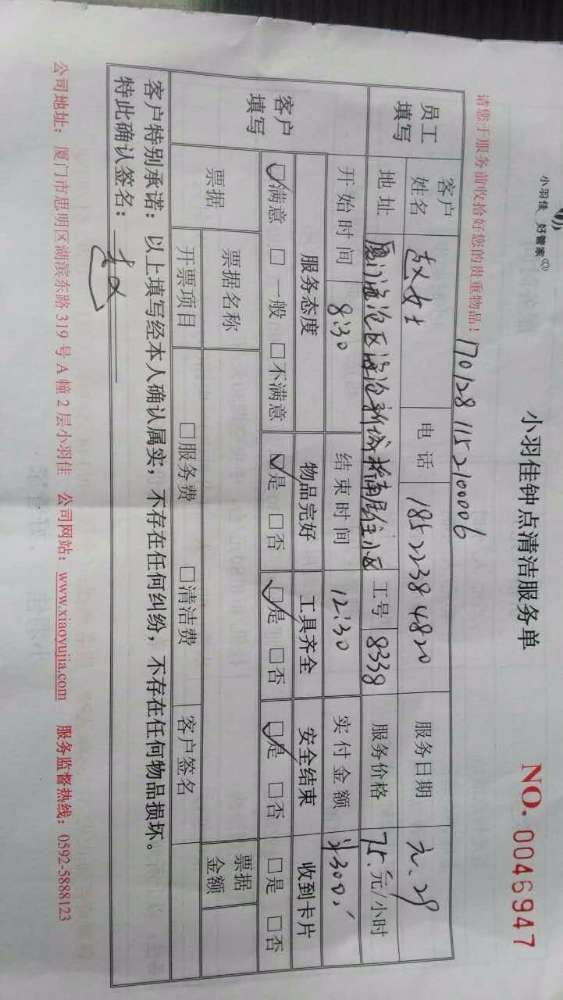 小羽佳 好管家
小羽佳钟点清洁服务单
NO. 0046947
1701281152100006
请您于服务前收拾好您的贵重物品！
员工填写 客户姓名 赵女士 电话 18522384820 服务日期 元.29
地址 厦门海沧区海沧新 指南居住小区 工号 8338 服务价格 75.元/小时
开始时间 8:30 结束时间 12:30 实付金额 ¥300.
客户填写 服务态度 物品完好 工具齐全 安全结束 收到卡片
☑满意 □一般 □不满意 ☑是 □否 ☑是 □否 ☑是 □否 □是 □否
票据 票据名称 票据金额
开票项目 □服务费 □清洁费 客户签名
客户特别承诺：以上填写经本人确认属实，不存在任何纠纷，不存在任何物品损坏。
特此确认签名：
公司地址：厦门市思明区湖滨东路 319 号 A 幢 2 层小羽佳 公司网站：www.xiaoyujia.com 服务监督热线：0592-5888123